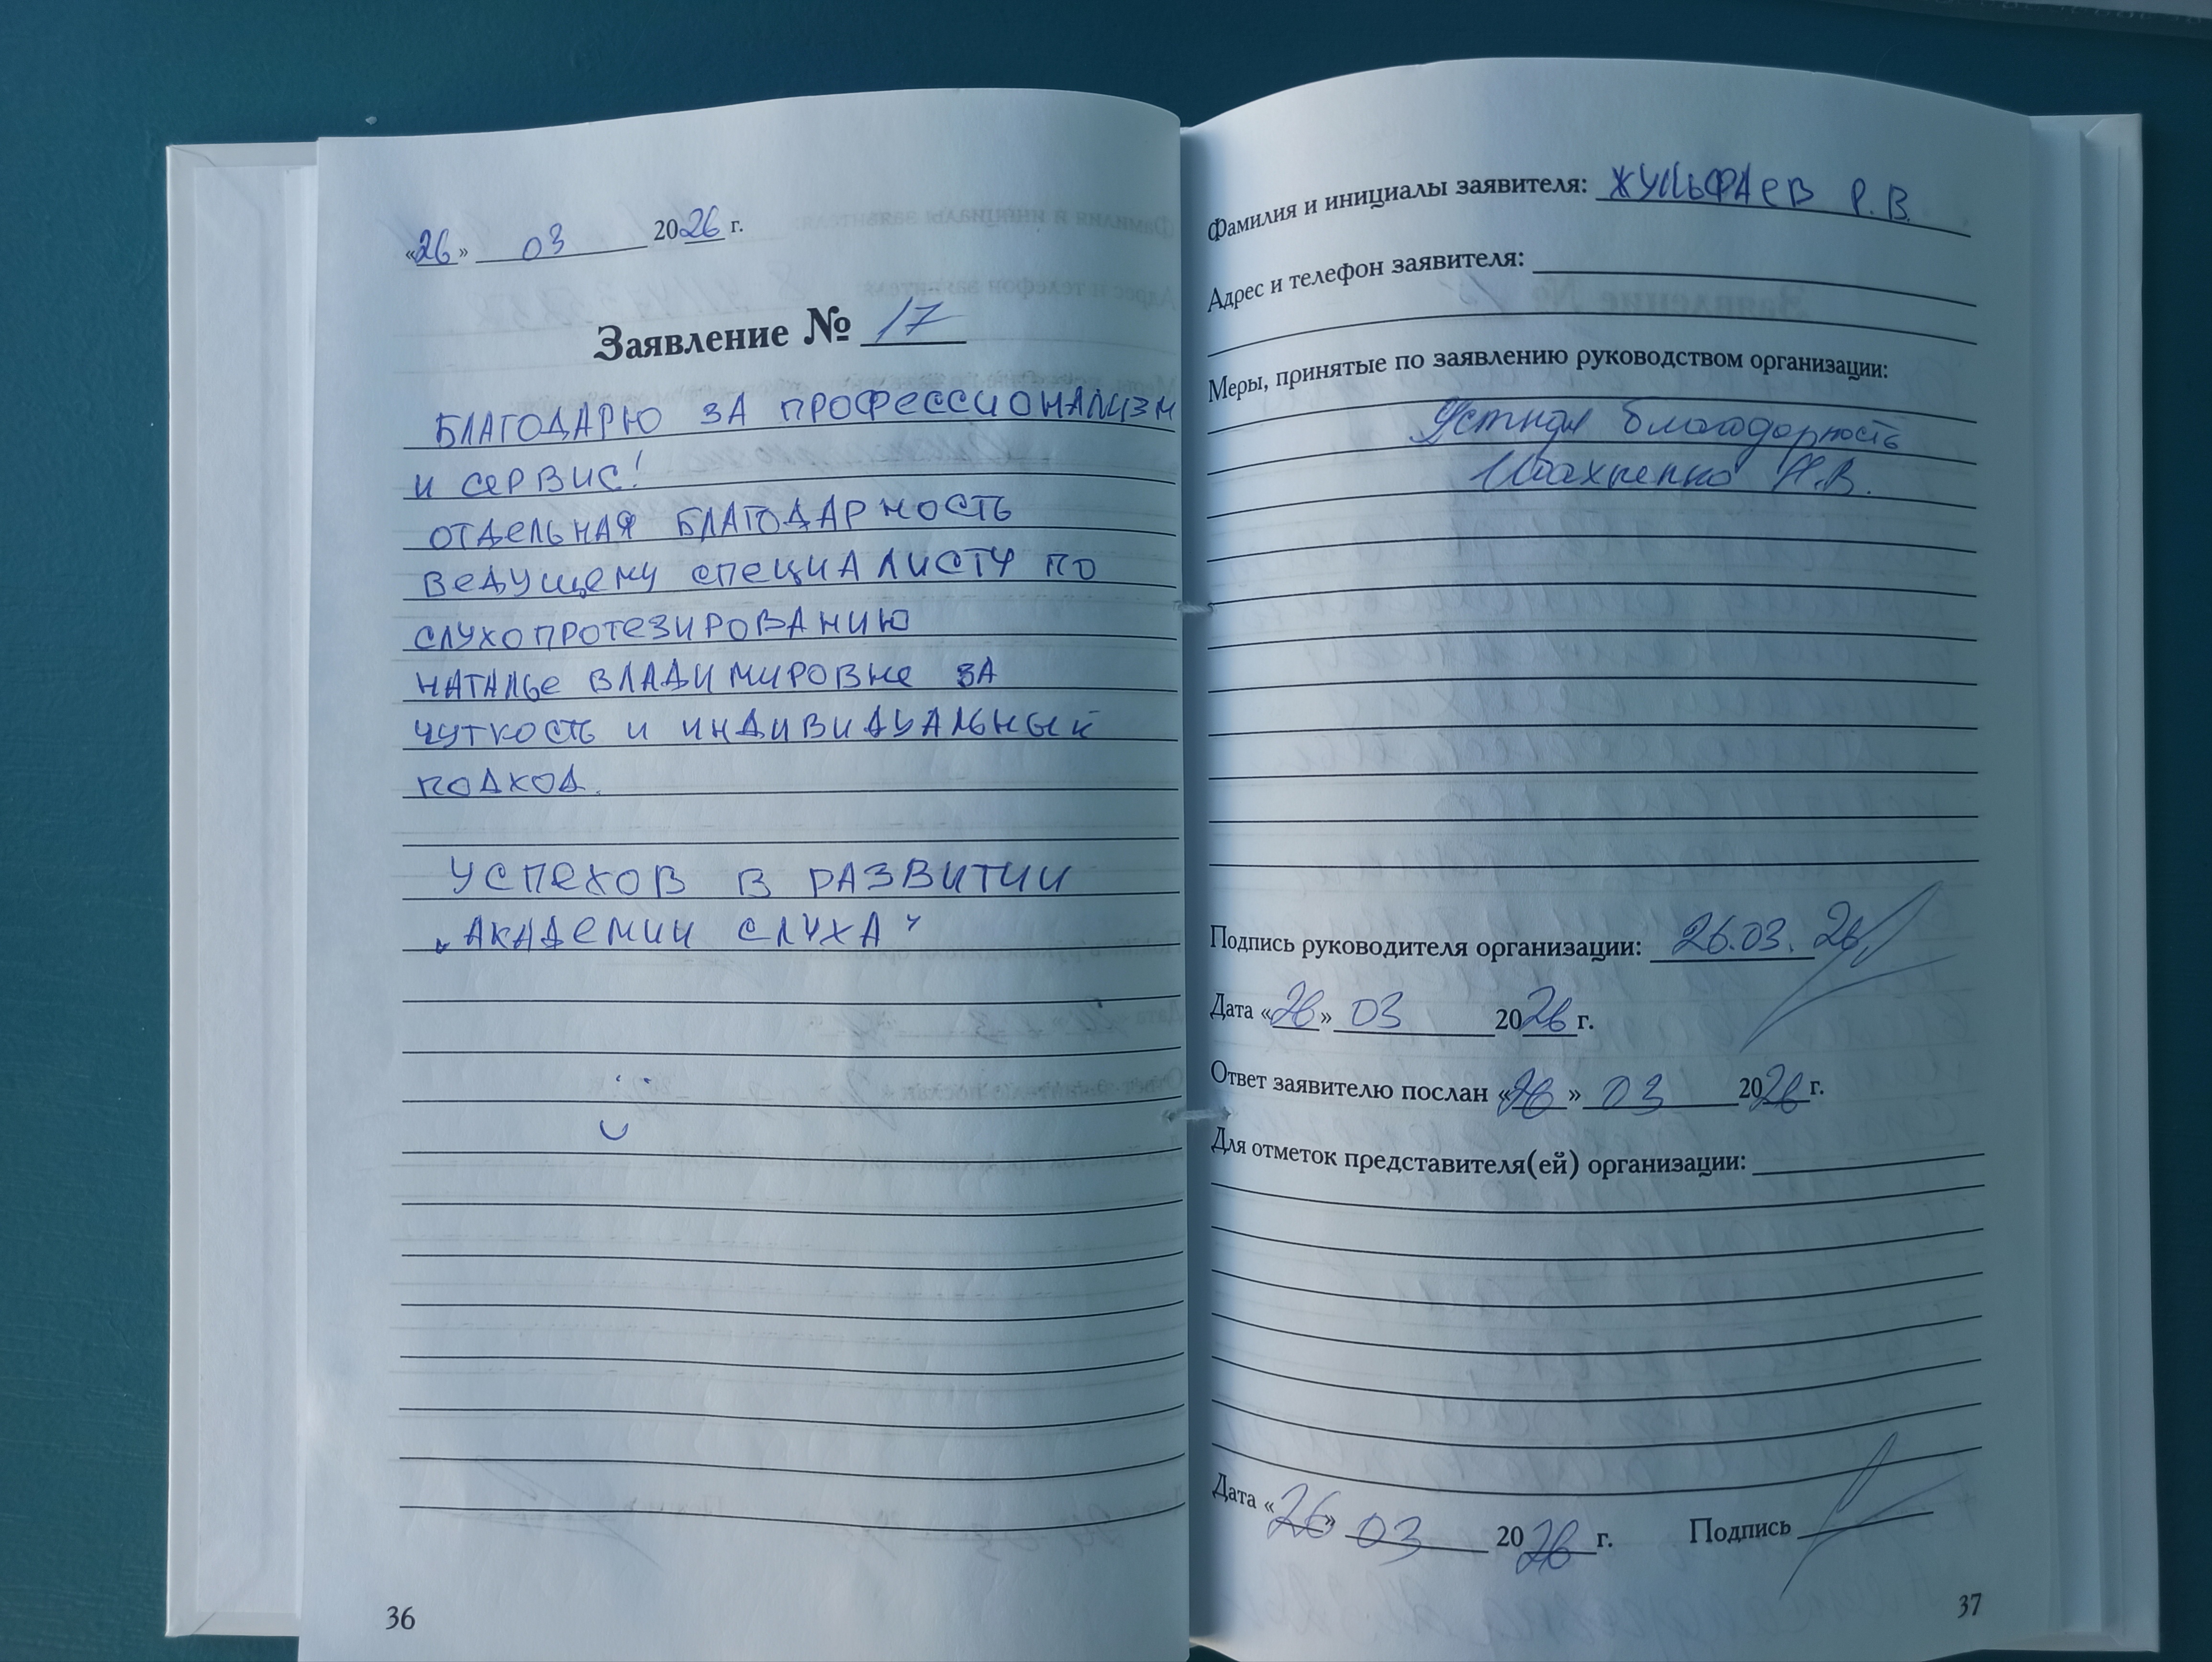 «26» 03 2026 г.
Заявление № 17
БЛАГОДАРЮ ЗА ПРОФЕССИОНАЛИЗМ
И СЕРВИС!
ОТДЕЛЬНАЯ БЛАГОДАРНОСТЬ
ВЕДУЩЕМУ СПЕЦИАЛИСТУ ПО
СЛУХОПРОТЕЗИРОВАНИЮ
НАТАЛЬЕ ВЛАДИМИРОВНЕ ЗА
ЧУТКОСТЬ И ИНДИВИДУАЛЬНЫЙ
ПОДХОД.
УСПЕХОВ В РАЗВИТИИ
"АКАДЕМИИ СЛУХА"
36
Фамилия и инициалы заявителя: ЖУЛЬФАЕВ Р.В.
Адрес и телефон заявителя:
Меры, принятые по заявлению руководством организации:
Устная благодарность
Н.В.
Подпись руководителя организации: 26.03.26
Дата «26» 03 2026 г.
Ответ заявителю послан «26» 03 2026 г.
Для отметок представителя(ей) организации:
Дата «26» 03 2026 г. Подпись
37